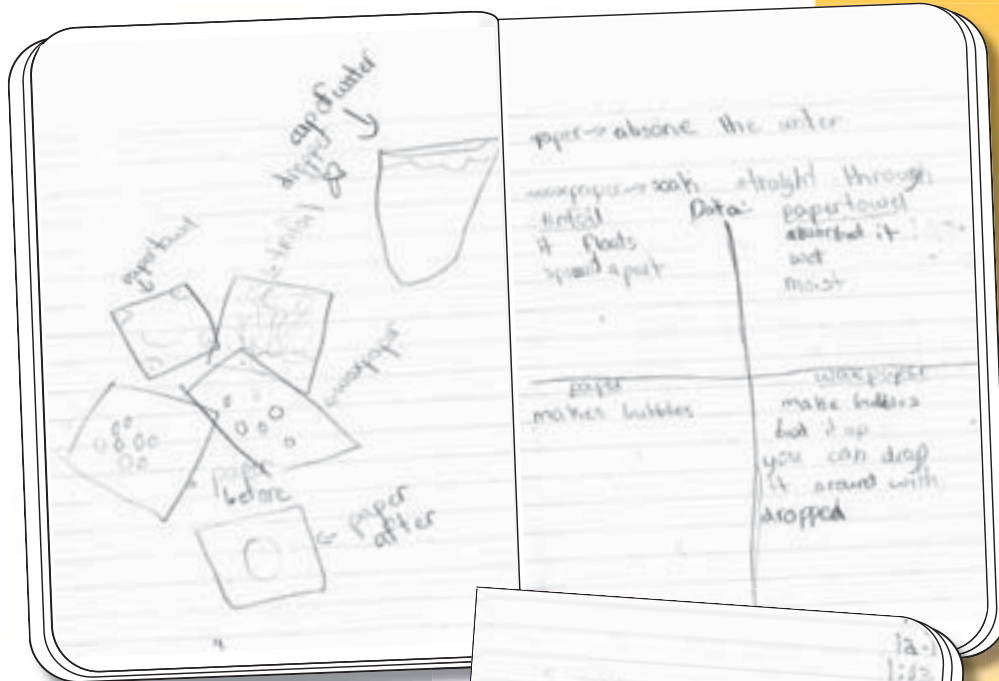 cup of water
dropper
papertowel
tinfoil
waxpaper
paper
before
paper
after
4
paper → absorbe the water
waxpaper → soak straight through
Data:
tinfoil
it floats
spread apart
papertowel
absorbed it
wet
moist
paper
makes bubbles
waxpaper
make bubbles
but it up
you can drag
it around with
dropped